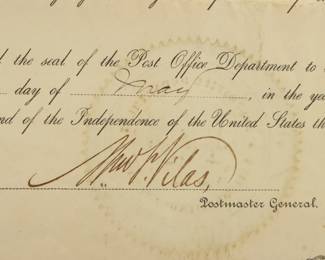 d the seal of the Post Office Department to
day of May, in the year
nd of the Independence of the United States th
Wm F Vilas,
Postmaster General.